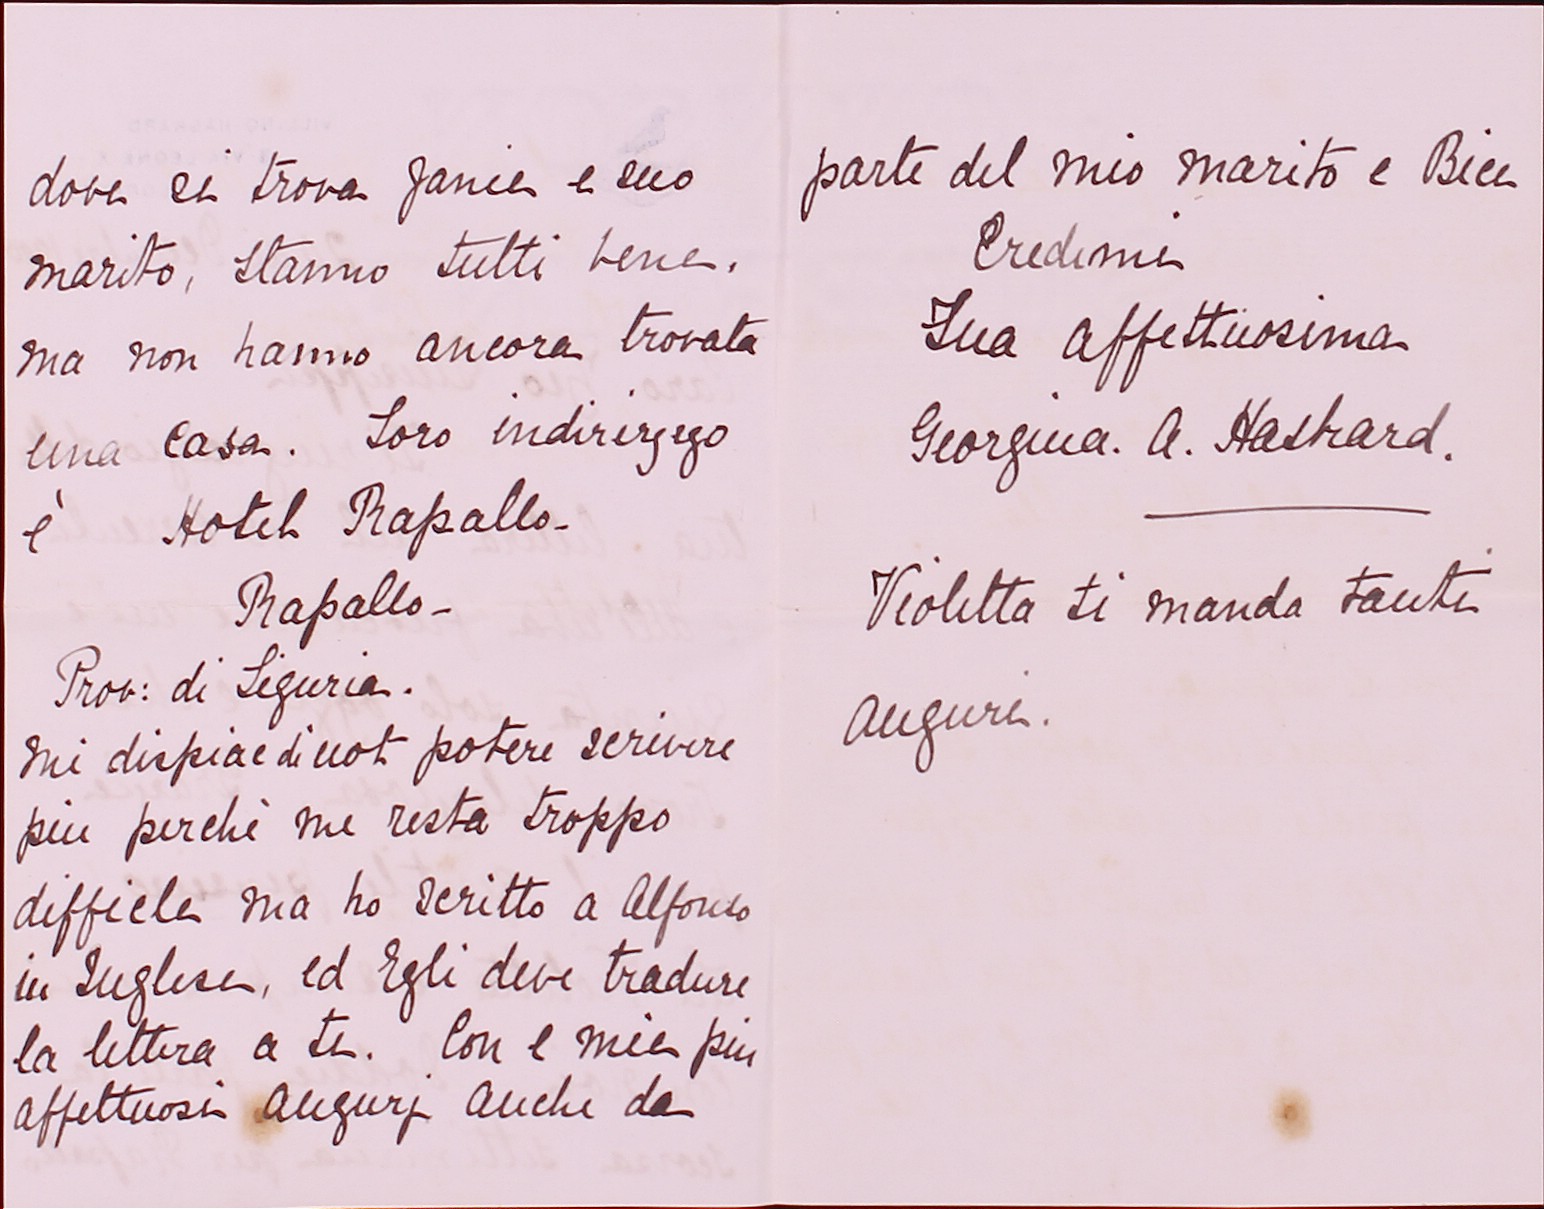 dove si trova Janie e suo
marito, stanno tutti bene.
ma non hanno ancora trovata
una casa. Loro indirizzo
è Hotel Rapallo-
Rapallo-
Prov: di Liguria.
Mi dispiace di not potere scrivere
piu perchè me resta troppo
difficile ma ho scritto a Alfonso
in Inglese, ed Egli deve tradure
la lettera a te. Con e miei piu
affettuosi augurj anche da
parte del mio marito e Bice
Credimi
Tua affettuosima
Georgina. A. Haskard.
Violetta ti manda tanti
auguri.